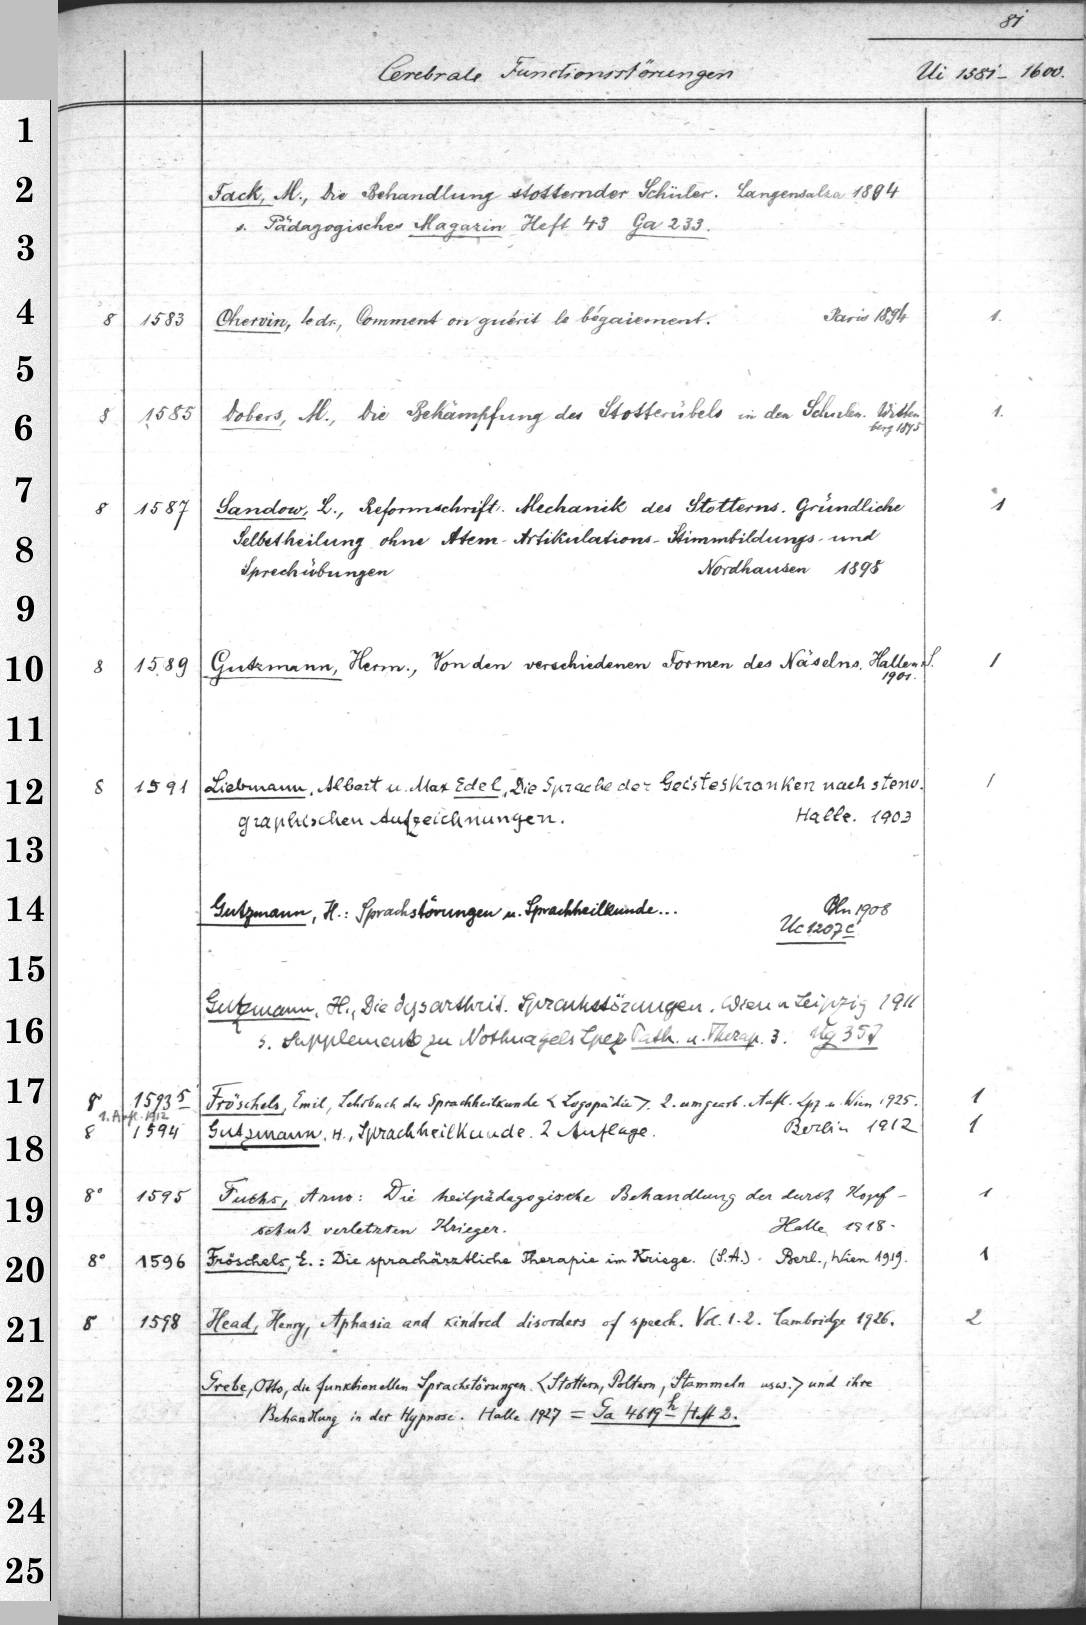 81
Cerebrale Functionsstörungen Ui 1581 - 1600.
Fack, M., Die Behandlung stotternder Schüler. Langensalza 1894
s. Pädagogisches Magazin Heft 43 Ga 233.
8 1583 Chervin, le dr., Comment on guérit le bégaiement. Paris 1894 1.
8 1585 Dobers, M., Die Bekämpfung des Stotterübels in den Schulen. Witten
berg 1895 1.
8 1587 Sandow, L., Reformschrift. Mechanik des Stotterns. Gründliche 1
Selbstheilung ohne Atem- Artikulations- Stimmbildungs- und
Sprechübungen Nordhausen 1898
8 1589 Gutzmann, Herm., Von den verschiedenen Formen des Näselns. Halle a. S. 1
1901.
8 1591 Liebmann, Albert u. Max Edel, Die Sprache der Geisteskranken nach steno- 1
graphischen Aufzeichnungen. Halle. 1903
Gutzmann, H.: Sprachstörungen u. Sprachheilkunde... Bln 1908
Uc 1207 c
Gutzmann, H., Die dysarthrit. Sprachstörungen. Wien u Leipzig 1911
s. Supplemente zu Nothnagels Spez Path. u. Therap. 3. Ug 357
8 1593 5 Fröschels, Emil, Lehrbuch der Sprachheilkunde < Logopädie >. 2. umgearb. Aufl. Lpz u. Wien 1925. 1
1. Aufl. 1912
8 1594 Gutzmann, H., Sprachheilkunde. 2 Auflage. Berlin 1912 1
8° 1595 Fuchs, Arno: Die heilpädagogische Behandlung der durch Kopf- 1
schuß verletzten Krieger. Halle 1918.
8° 1596 Fröschels, E.: Die sprachärztliche Therapie im Kriege. (S.A.). Berl., Wien 1919. 1
8 1598 Head, Henry, Aphasia and kindred disorders of speech. Vol. 1-2. Cambridge 1926. 2
Grebe, Otto, die funktionellen Sprachstörungen <Stottern, Poltern, Stammeln usw.> und ihre
Behandlung in der Hypnose. Halle 1927 = Ga 4619 h / Heft 2.
1
2
3
4
5
6
7
8
9
10
11
12
13
14
15
16
17
18
19
20
21
22
23
24
25